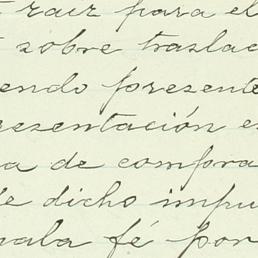 raiz para el
sobre traslac
endo presente
resentación e
a de compra
de dicho impu
mala fé por